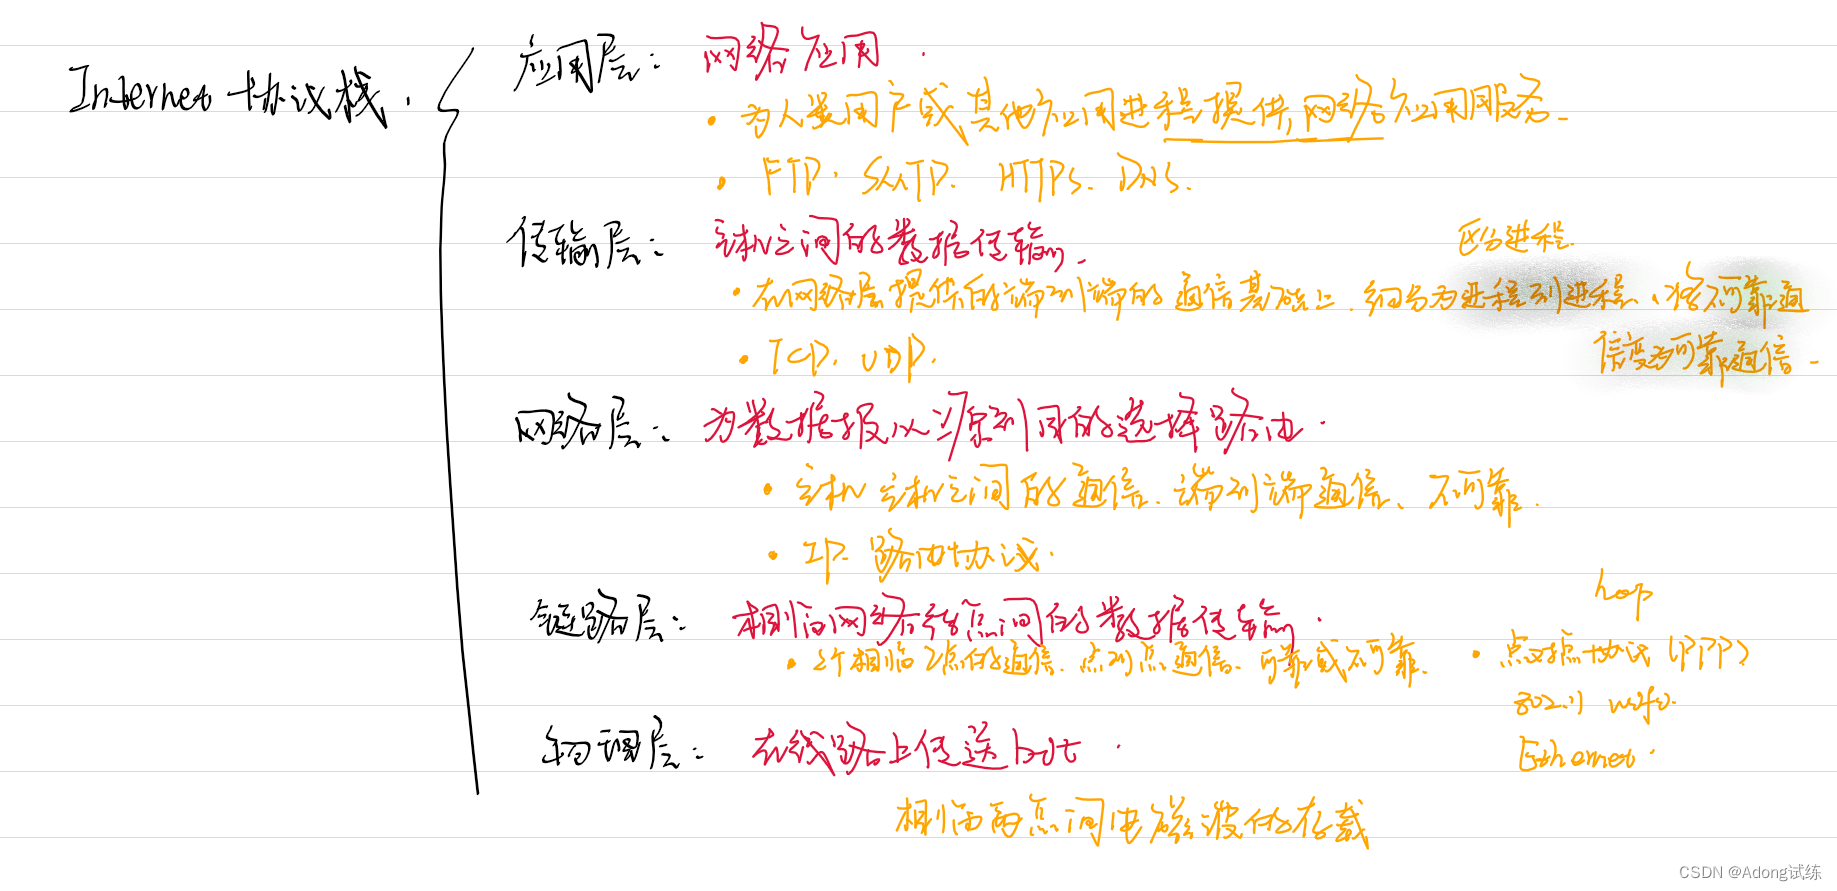 Internet 协议栈.
应用层: 网络应用.
• 为人类用户或其他应用进程提供网络应用服务.
• FTP. SMTP. HTTPS. DNS.
传输层: 主机之间的数据传输.
区分进程.
• 在网络层提供的端到端的通信基础上. 细分为进程到进程、将不可靠通
信变为可靠通信.
• TCP. UDP.
网络层: 为数据报从源到目的选择路由.
• 主机主机之间的通信. 端到端通信、不可靠.
• IP. 路由协议.
链路层: 相邻网络结点间的数据传输.
hop
• 2个相邻2点的通信. 点到点通信. 可靠或不可靠.
• 点对点协议 (PPP)
802.11 wifi.
Ethernet.
物理层: 在线路上传送bit.
相邻两点间电磁波的存载
CSDN @Adong试练